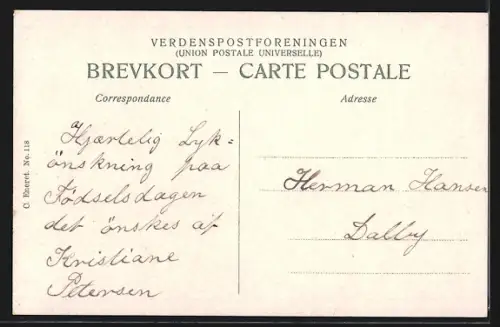 VERDENSPOSTFORENINGEN
(UNION POSTALE UNIVERSELLE)
BREVKORT — CARTE POSTALE
Correspondance
Adresse
Hjærtelig Lyk-
önskning paa
Födselsdagen
det önskes af
Kristiane
Petersen
Herman Hansen
Dalby
C. Eneret. No. 118